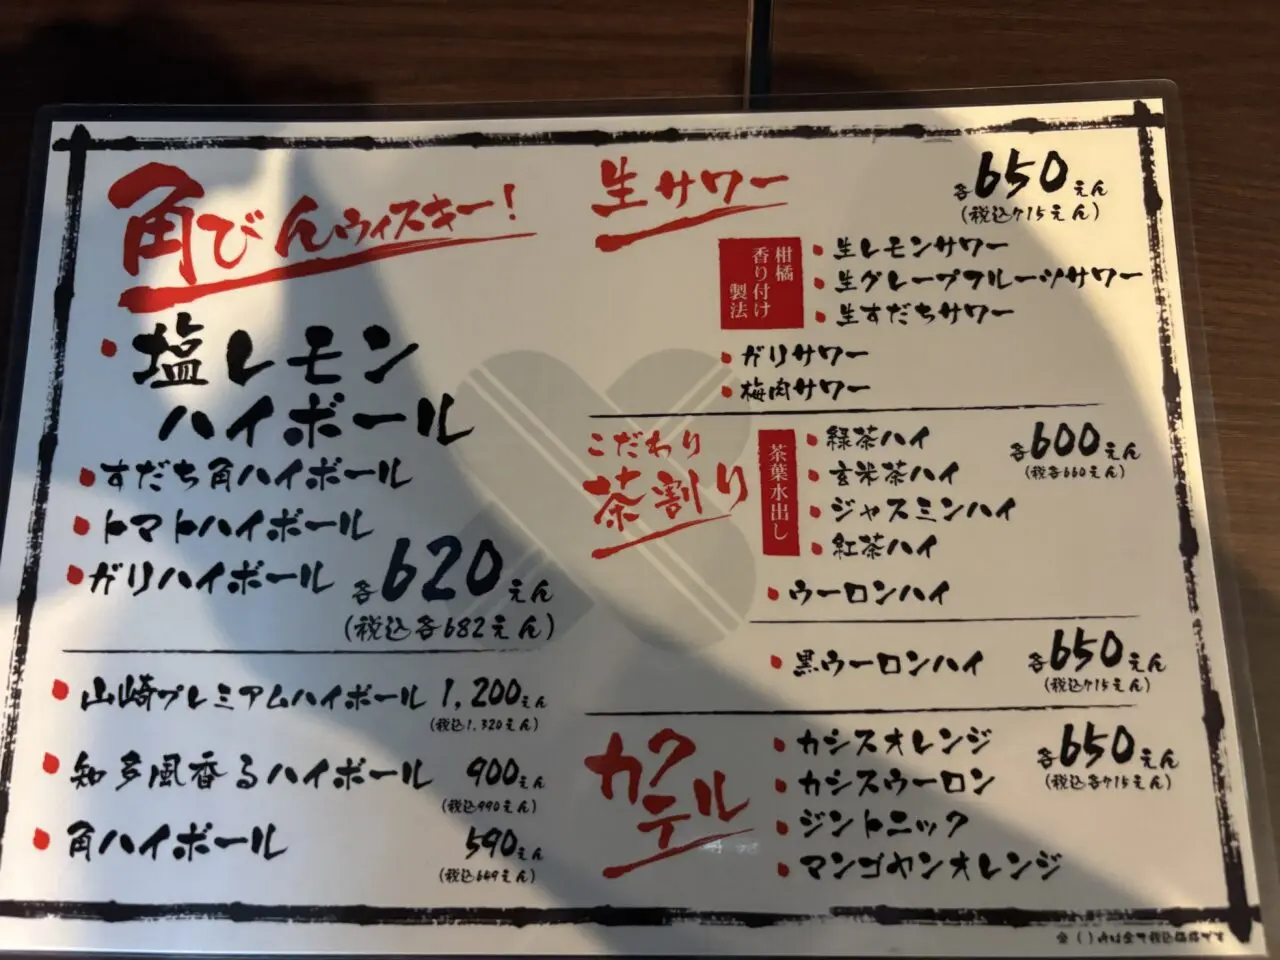 角びんウィスキー!
塩レモン
ハイボール
すだち角ハイボール
トマトハイボール
ガリハイボール
各620えん
(税込各682えん)
山崎プレミアムハイボール 1,200えん
(税込1.320えん)
知多風香るハイボール 900えん
(税込990えん)
角ハイボール 590えん
(税込649えん)
生サワー
各650えん
(税込715えん)
柑橘
香り付け
製法
生レモンサワー
生グレープフルーツサワー
生すだちサワー
ガリサワー
梅肉サワー
こだわり
茶割り
茶葉水出し
緑茶ハイ
玄米茶ハイ
ジャスミンハイ
紅茶ハイ
ウーロンハイ
各600えん
(税各660えん)
黒ウーロンハイ
各650えん
(税込715えん)
カク
テル
カシスオレンジ
カシスウーロン
ジントニック
マンゴヤンオレンジ
各650えん
(税込各715えん)
※( )内は全て税込価格です